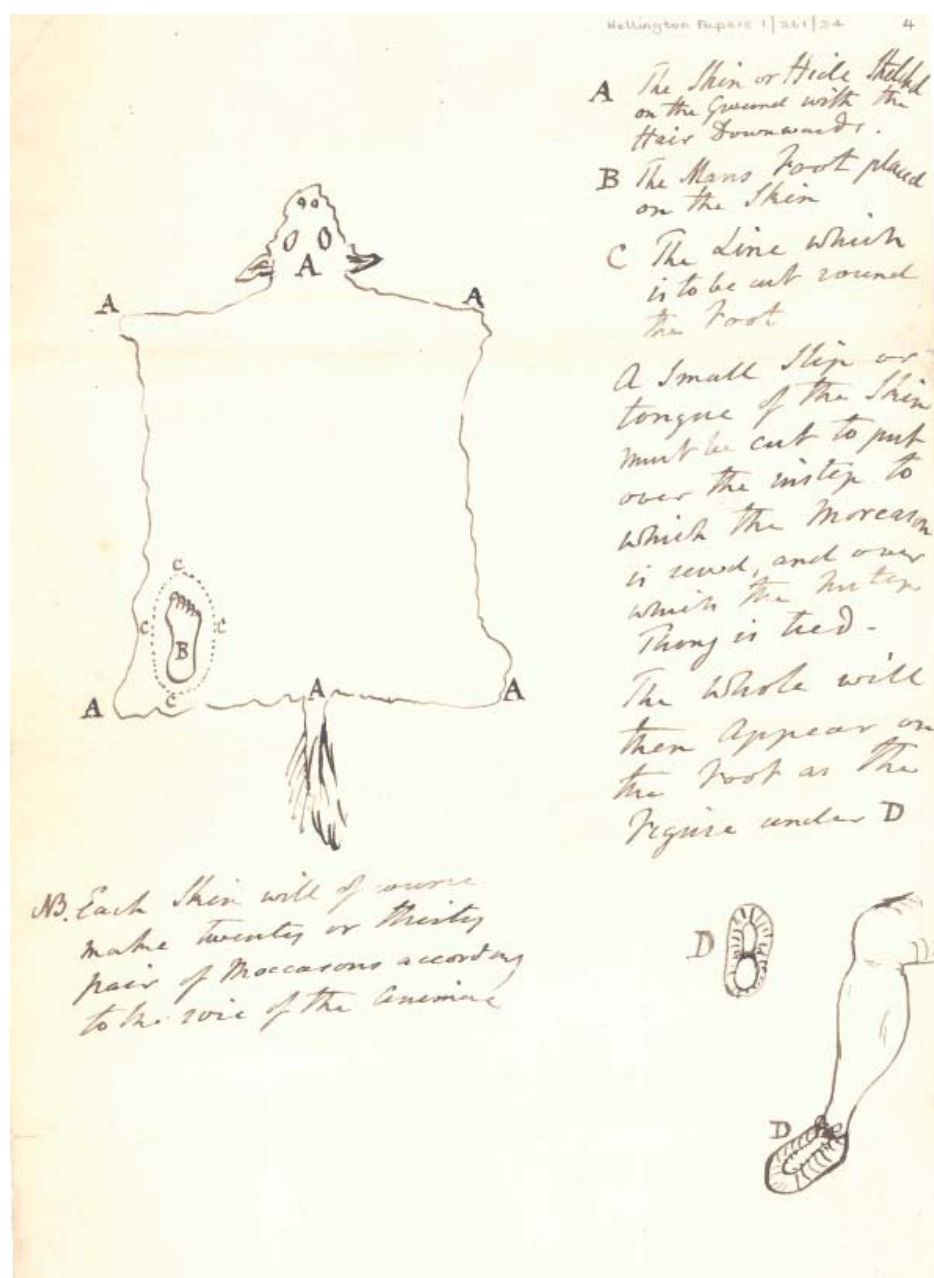 Wellington Papers 1/261/24 4
A The Skin or Hide Stretched
on the Ground with the
Hair Downwards.
B The Mans Foot placed
on the Skin
C The Line which
is to be cut round
the Foot
A Small Slip or
tongue of the Skin
must be cut to put
over the instep to
which the Moccason
is sewd, and over
which the Instep
Thong is tied-
The Whole will
then Appear on
the Foot as the
Figure under D
A
A
A
C
C
C
B
C
A
A
A
NB. Each Skin will of course
make twenty or thirty
pair of Moccasons according
to the size of the Animal
D
D